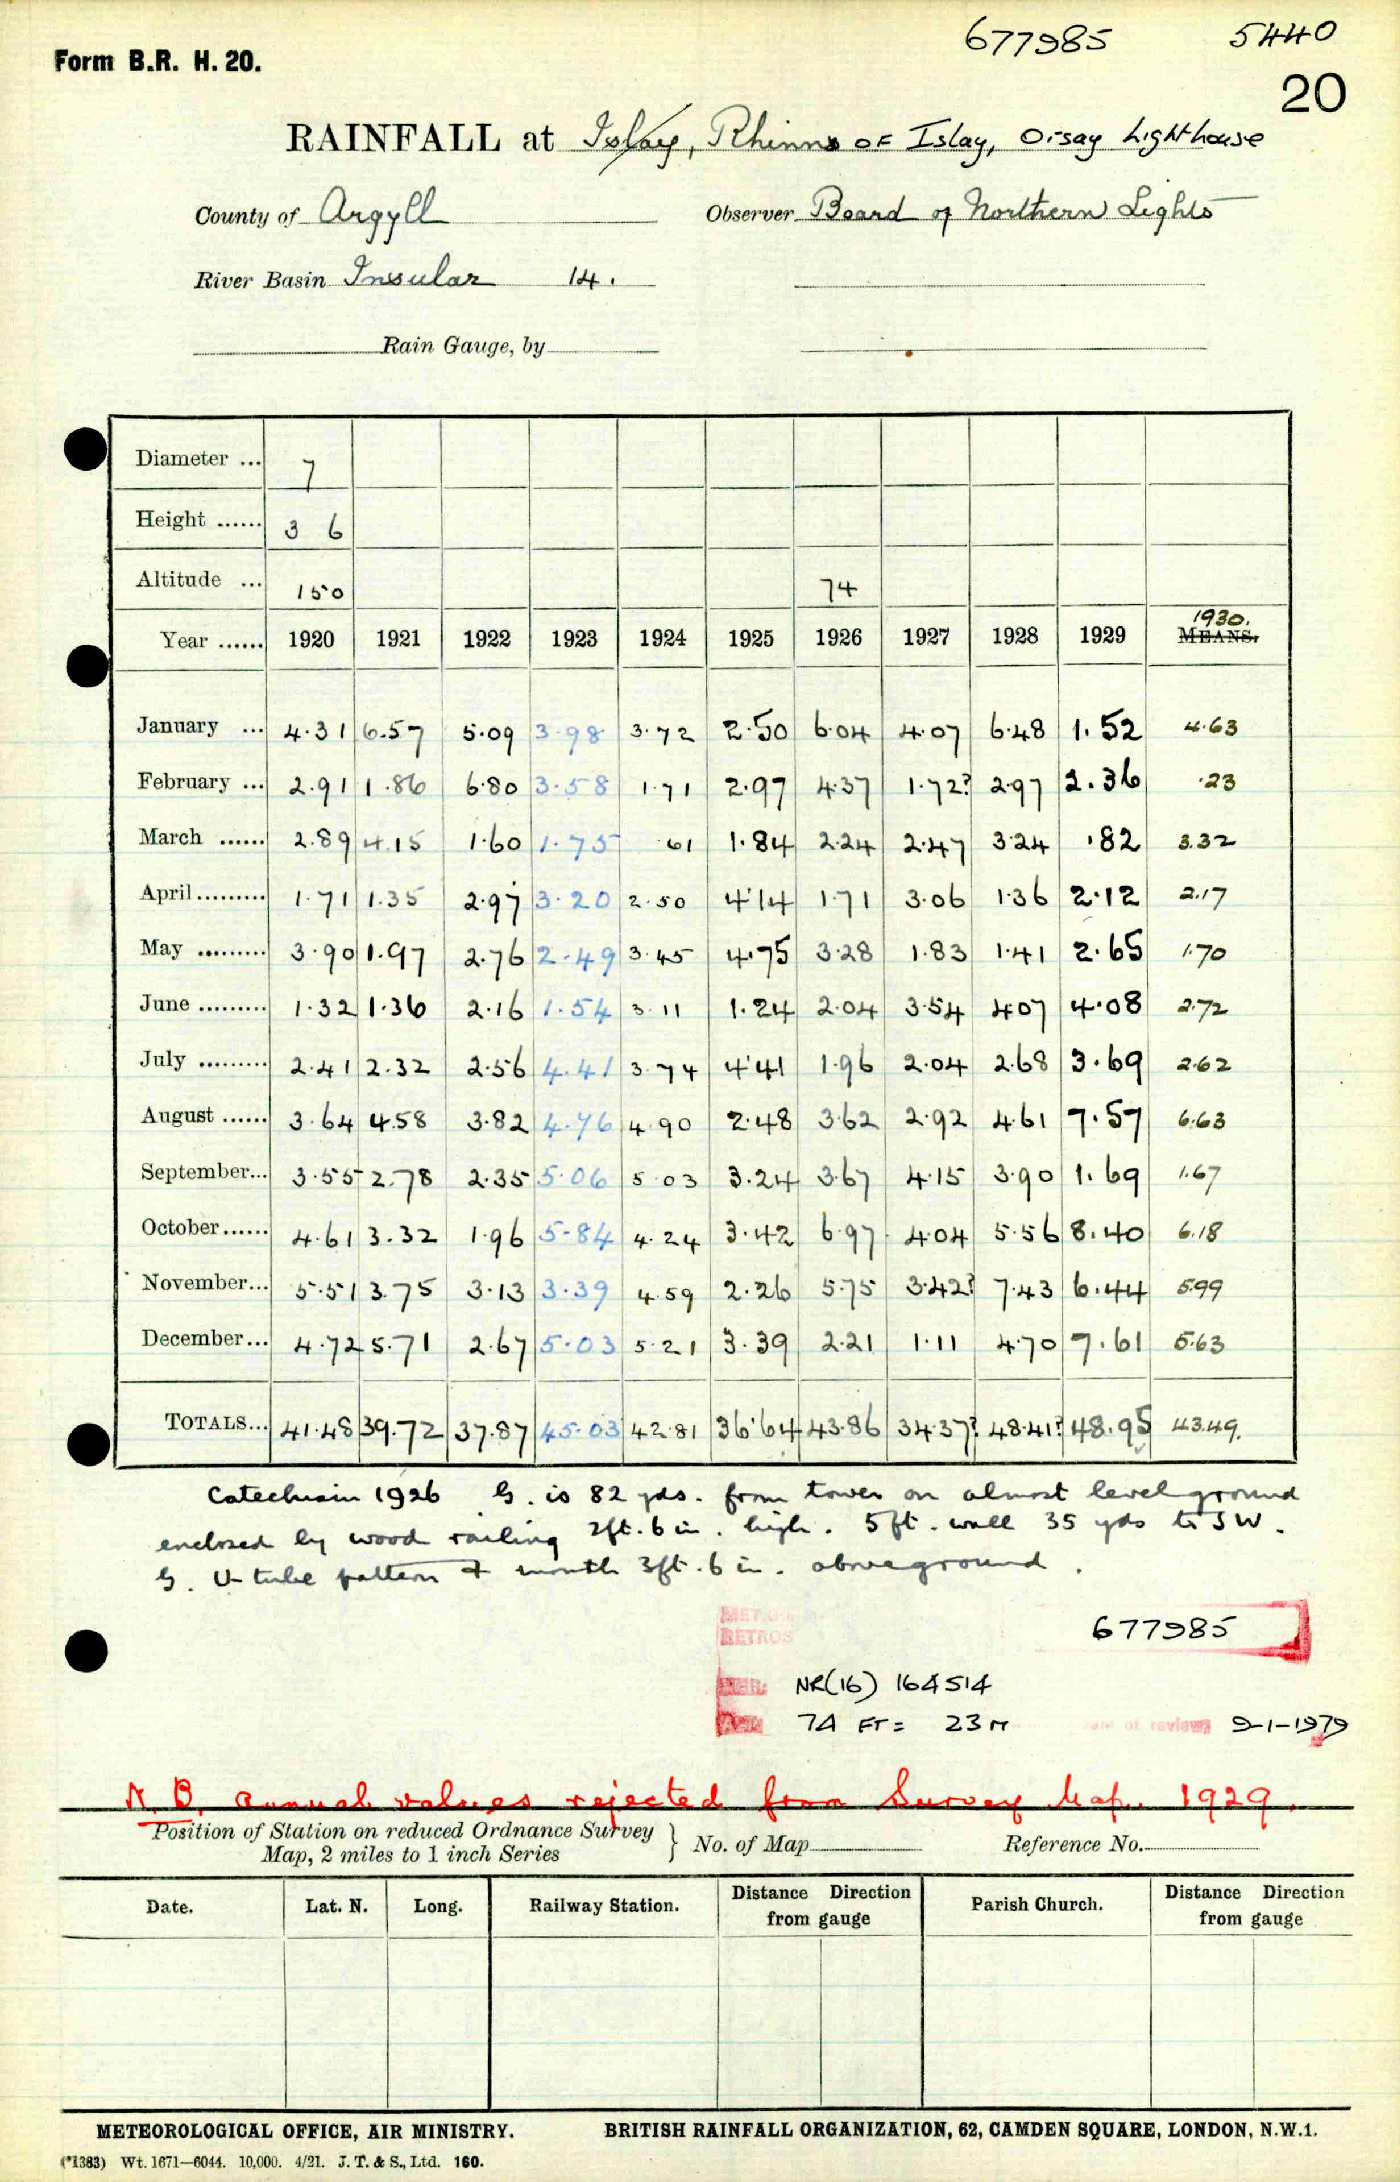 677985 5440
Form B.R. H. 20.
20
RAINFALL at Islay, Rhinns OF Islay, Orsay Lighthouse
County of Argyll Observer Board of Northern Lights
River Basin Insular 14.
Rain Gauge, by
Diameter ... 7
Height ...... 3 6
Altitude ... 150 74
Year ...... 1920 1921 1922 1923 1924 1925 1926 1927 1928 1929 1930. MEANS.
January ... 4.31 6.57 5.09 3.98 3.72 2.50 6.04 4.07 6.48 1.52 4.63
February ... 2.91 1.86 6.80 3.58 1.71 2.97 4.37 1.72? 2.97 2.36 .23
March ...... 2.89 4.15 1.60 1.75 .61 1.84 2.24 2.47 3.24 .82 3.32
April ......... 1.71 1.35 2.97 3.20 2.50 4.14 1.71 3.06 1.36 2.12 2.17
May ......... 3.90 1.97 2.76 2.49 3.45 4.75 3.28 1.83 1.41 2.65 1.70
June ......... 1.32 1.36 2.16 1.54 3.11 1.24 2.04 3.54 4.07 4.08 2.72
July ......... 2.41 2.32 2.56 4.41 3.74 4.41 1.96 2.04 2.68 3.69 2.62
August ...... 3.64 4.58 3.82 4.76 4.90 2.48 3.62 2.92 4.61 7.57 6.63
September... 3.55 2.78 2.35 5.06 5.03 3.24 3.67 4.15 3.90 1.69 1.67
October...... 4.61 3.32 1.96 5.84 4.24 3.42 6.97 4.04 5.56 8.40 6.18
November... 5.51 3.75 3.13 3.39 4.59 2.26 5.75 3.42? 7.43 6.44 5.99
December... 4.72 5.71 2.67 5.03 5.21 3.39 2.21 1.11 4.70 7.61 5.63
TOTALS... 41.48 39.72 37.87 45.03 42.81 36.64 43.86 34.37? 48.41? 48.95 43.49.
Catechism 1926 G. is 82 yds. from tower on almost level ground
enclosed by wood railing 2ft. 6 in. high. 5ft. wall 35 yds to SW.
G. U-tube pattern & mouth 3ft. 6 in. above ground.
MET.O.
RETROS
677985
NR(16) 164514
74 FT = 23 M of review 9-1-1979
N.B. Annual values rejected from Survey Map. 1929.
Position of Station on reduced Ordnance Survey
Map, 2 miles to 1 inch Series } No. of Map Reference No.
Date. Lat. N. Long. Railway Station. Distance Direction from gauge Parish Church. Distance Direction from gauge
METEOROLOGICAL OFFICE, AIR MINISTRY. BRITISH RAINFALL ORGANIZATION, 62, CAMDEN SQUARE, LONDON, N.W.1.
(*1383) Wt. 1671—6044. 10,000. 4/21. J. T. & S., Ltd. 160.